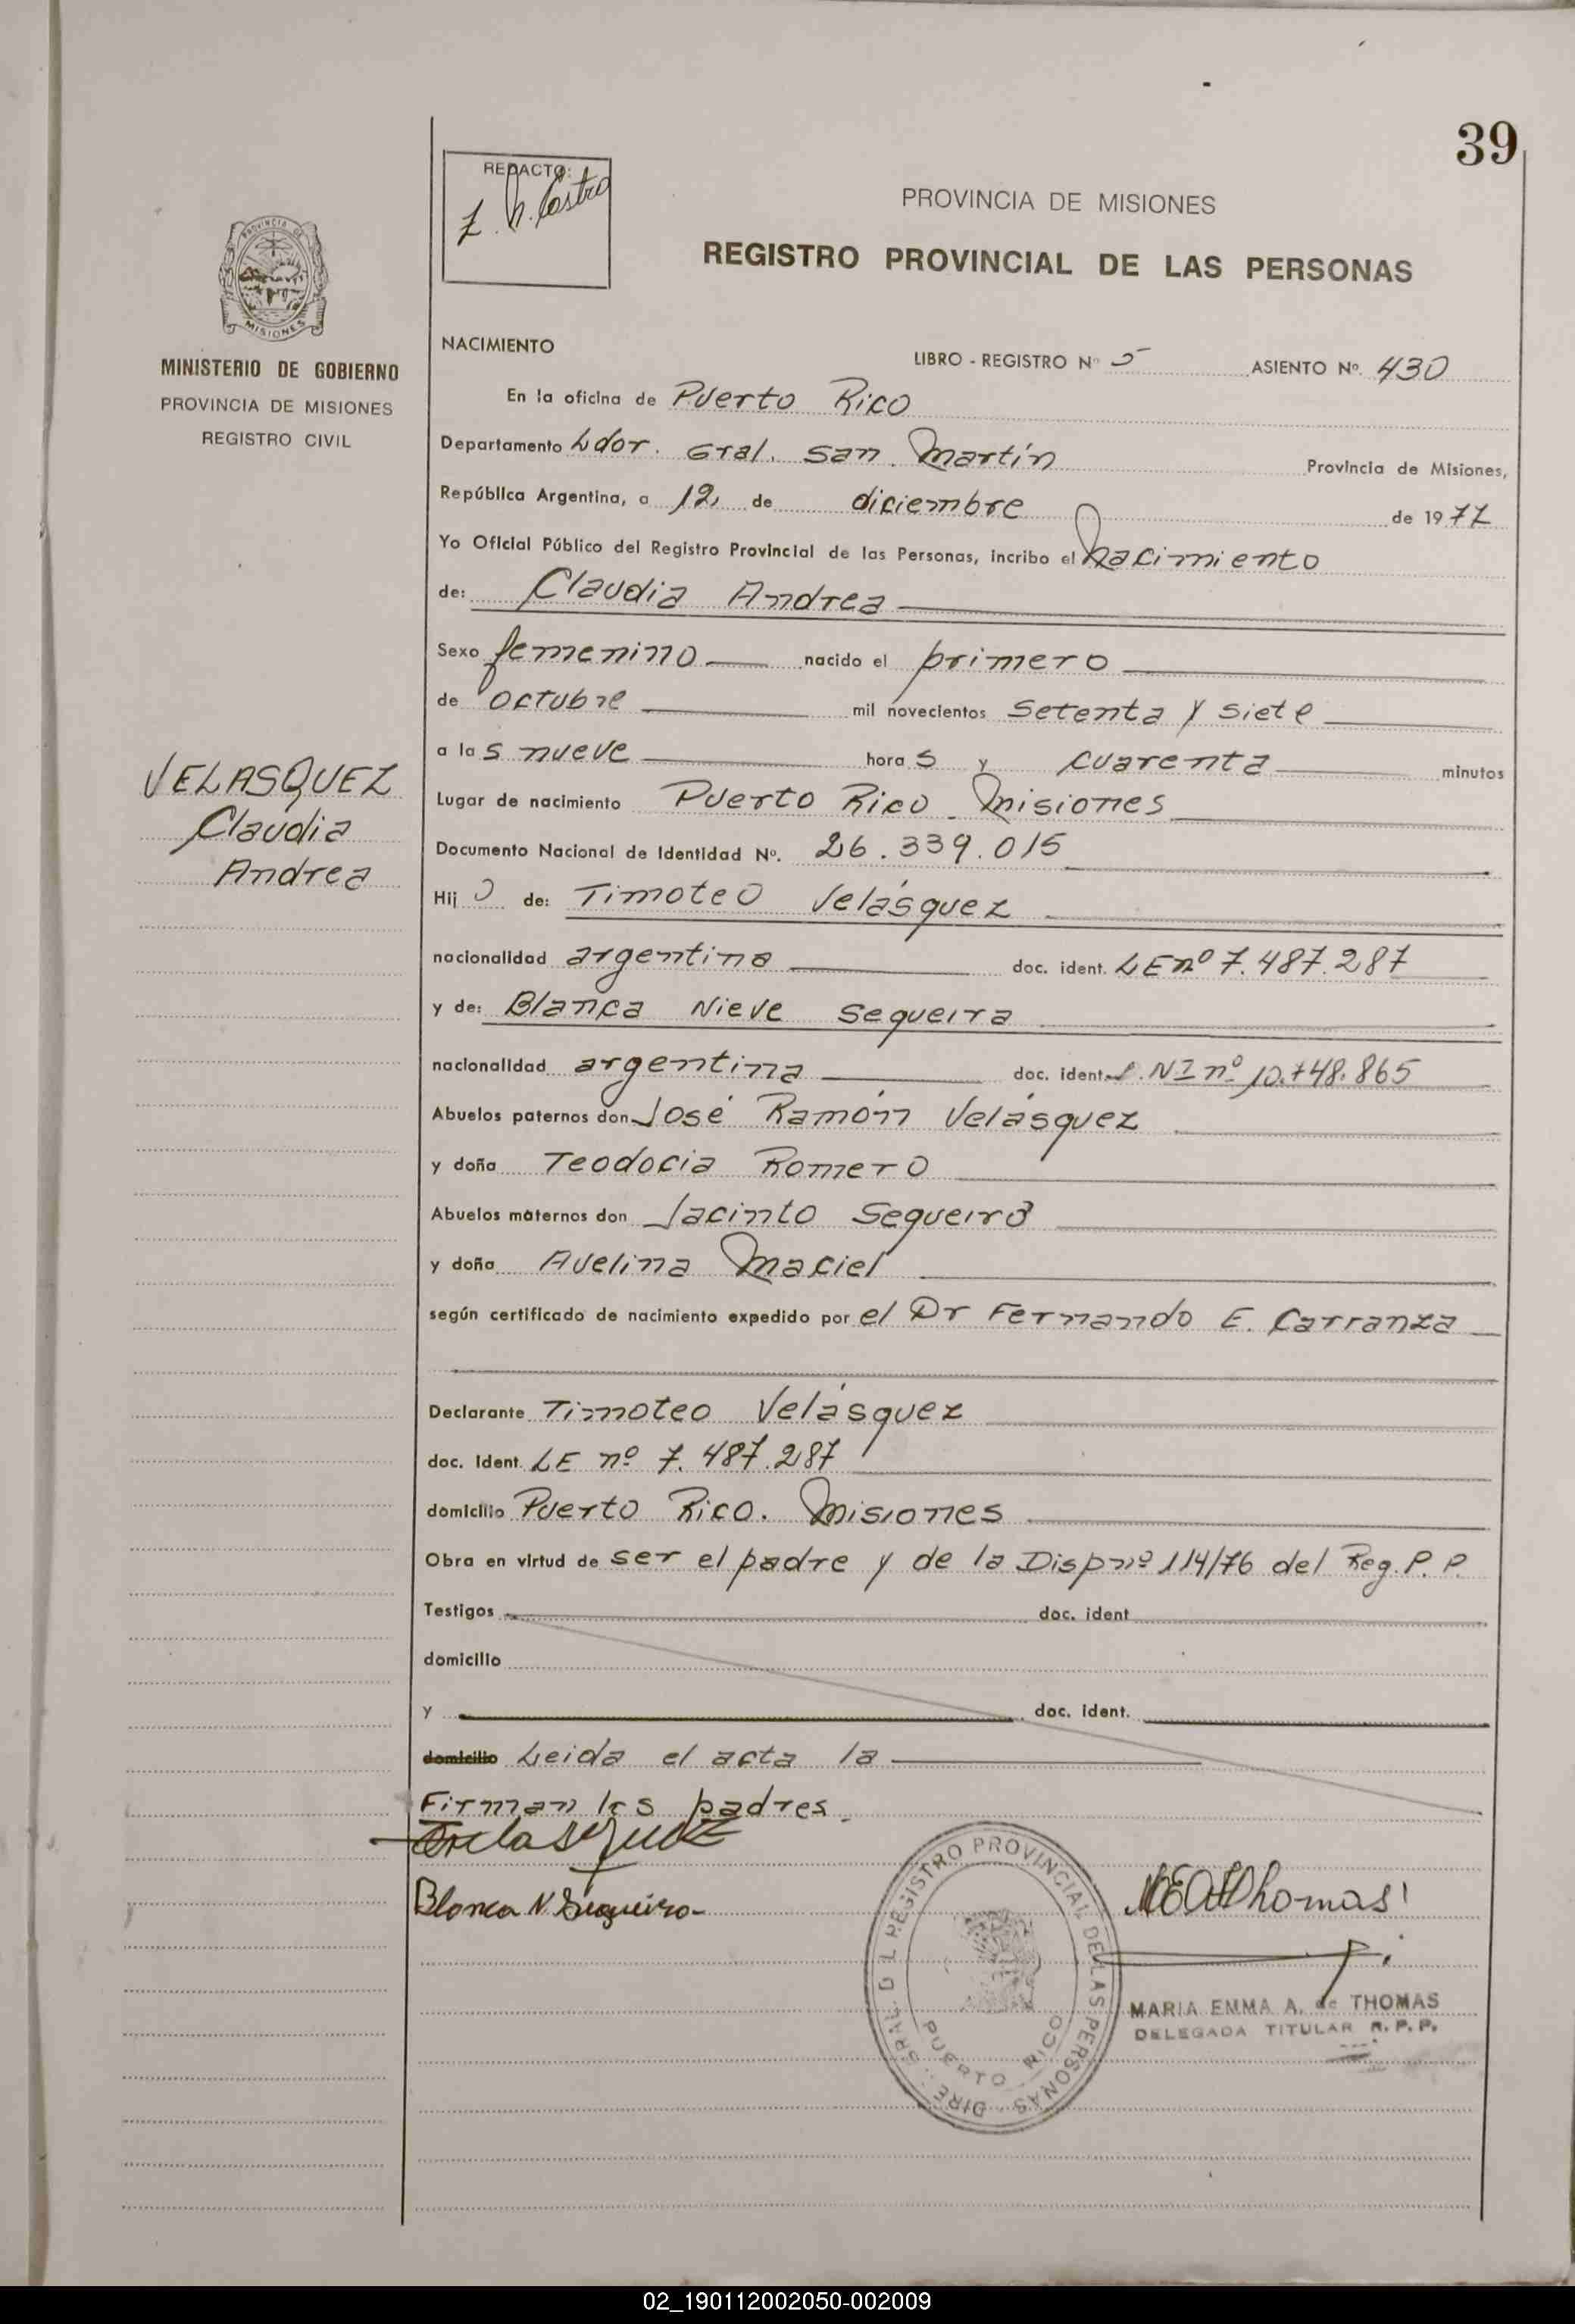 39
REDACTO:
Castro
PROVINCIA DE MISIONES
REGISTRO PROVINCIAL DE LAS PERSONAS
PROVINCIA DE
MISIONES
MINISTERIO DE GOBIERNO
PROVINCIA DE MISIONES
REGISTRO CIVIL
NACIMIENTO
LIBRO - REGISTRO Nº 5 ASIENTO Nº. 430
En la oficina de Puerto Rico
Departamento Ldor. Gral. San Martín Provincia de Misiones,
República Argentina, a 12 de diciembre de 1977
Yo Oficial Público del Registro Provincial de las Personas, incribo el nacimiento
de: Claudia Andrea
Sexo femenino nacido el primero
de octubre mil novecientos setenta y siete
a las nueve horas y cuarenta minutos
VELASQUEZ
Claudia
Andrea
Lugar de nacimiento Puerto Rico. Misiones
Documento Nacional de Identidad Nº. 26.339.015
Hijo de: Timoteo Velásquez
nacionalidad argentina doc. ident. LE nº 7.487.287
y de: Blanca Nieve Sequeira
nacionalidad argentina doc. ident. NI nº 10.748.865
Abuelos paternos don José Ramón Velásquez
y doña Teodocia Romero
Abuelos maternos don Jacinto Sequeira
y doña Avelina Maciel
según certificado de nacimiento expedido por el Dr Fernando E. Carranza
Declarante Timoteo Velásquez
doc. Ident. LE nº 7.487.287
domicilio Puerto Rico. Misiones
Obra en virtud de ser el padre y de la Disp nº 114/76 del Reg. P. P.
Testigos doc. ident
domicilio
y doc. ident.
domicilio Leida el acta la
Firman los padres.
Velasquez
Blanca N. Sequeira
Thomas
REGISTRO PROVINCIAL DE LAS PERSONAS
PUERTO RICO
MARIA EMMA A. de THOMAS
DELEGADA TITULAR R. P. P.
02_190112002050-002009